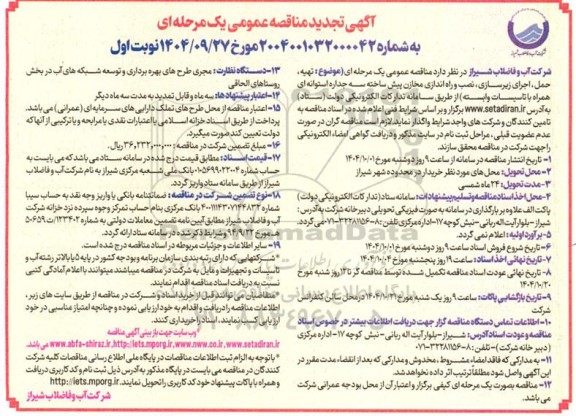 آگهی تجدید مناقصه عمومی یک مرحله ای
به شماره ۲۰۰۴۰۰۱۰۳۲۰۰۰۰۴۲ مورخ ۱۴۰۴/۰۹/۲۷ نوبت اول
شرکت آب و فاضلاب شیراز در نظر دارد مناقصه عمومی یک مرحله ای (موضوع: تهیه،
حمل، اجرای زیرسازی، نصب و راه اندازی مخازن پیش ساخته سه جداره استوانه ای
همراه با تاسیسات وابسته) از طریق سامانه تدارکات الکترونیکی دولت (ستاد)
به آدرس www.setadiran.ir برگزار و بر اساس شرایط فنی اعلام شده در اسناد مناقصه به
تامین کنندگان و شرکت های واجد شرایط واگذار نماید. لازم است مناقصه گران در صورت
عدم عضویت قبلی، مراحل ثبت نام در سایت مذکور و دریافت گواهی امضاء الکترونیکی
را جهت شرکت در مناقصه محقق سازند.
۱- تاریخ انتشار مناقصه در سامانه از ساعت ۹ روز دوشنبه مورخ ۱۴۰۴/۱۰/۰۱
۲- محل تحویل: محل های مورد نظر خریدار در محدوده شهر شیراز
۳- مدت تحویل: ۲۴ ماه شمسی
۴- محل اخذ اسناد مناقصه و تسلیم پیشنهادات: سامانه ستاد (تدارکات الکترونیکی دولت)
پاکت الف علاوه بر بارگذاری در سامانه به صورت فیزیکی تحویل دبیرخانه شرکت به آدرس:
شیراز- بلوار آیت اله ربانی- نبش کوچه ۱۷- اداره مرکزی تلفن: ۸-۳۲۲۸۱۱۵۶-۰۷۱
۵- برآورد اولیه: اعلام نمی گردد.
۶- تاریخ شروع فروش اسناد ساعت ۹ روز دوشنبه مورخ ۱۴۰۴/۱۰/۰۱
۷- تاریخ نهائی اخذ اسناد: ساعت ۱۹ روز پنجشنبه مورخ ۱۴۰۴/۱۰/۰۴
۸- تاریخ نهائی عودت اسناد تکمیل شده توسط مناقصه گر تا ۱۲ روز شنبه مورخ
۱۴۰۴/۱۰/۲۰
۹- تاریخ بازگشایی پاکات: ساعت ۹ روز یک شنبه مورخ ۱۴۰۴/۱۰/۲۱ در محل سالن کنفرانس
شرکت
۱۰- اطلاعات تماس دستگاه مناقصه گزار جهت دریافت اطلاعات بیشتر در خصوص اسناد
مناقصه و عودت اسناد آدرس: شیراز- بلوار آیت اله ربانی- نبش کوچه ۱۷- اداره مرکزی
(دبیرخانه شرکت)- تلفن: ۸-۳۲۲۸۱۱۵۶-۰۷۱
۱۱- به مدارکی که فاقد امضاء، مشروط، مخدوش و مدارکی که بعد از انقضاء مدت مقرر در
این آگهی واصل شود مطلقاً ترتیب اثر داده نخواهد شد.
۱۲- مناقصه بصورت یک مرحله ای کیفی برگزار و اعتبار آن از محل بودجه عمرانی شرکت
می باشد.
۱۳- دستگاه نظارت: مجری طرح های بهره برداری و توسعه شبکه های آب در بخش
روستاهای الحاقی
۱۴- اعتبار پیشنهادها: سه ماه و قابل تمدید به مدت سه ماه دیگر
۱۵- اعتبار مناقصه از محل طرح های تملک دارایی های سرمایه ای (عمرانی) می باشد،
پرداخت از طریق اسناد خزانه اسلامی یا اعتبارات نقدی یا مرابحه و یا ترکیبی از آنها که
دولت تعیین کند صورت میگیرد.
۱۶- مبلغ تضمین شرکت در مناقصه: ۳۶,۲۳۲,۰۰۰,۰۰۰ ریال
۱۷- قیمت اسناد: مطابق قیمت درج شده در سامانه ستاد می باشد که می بایست به
بانک ملی شعبه مرکزی شیراز به نام شرکت آب و فاضلاب
شیراز از طریق سامانه ستاد واریز گردد.
۱۸- نوع تضمین شرکت در مناقصه: ضمانتنامه بانکی یا واریز وجه نقد به حساب سیبا
بانک مرکزی بنام حساب تمرکز وجوه سپرده نزد خزانه شرکت
آب و فاضلاب شیراز مطابق آیین نامه تضمین معاملات دولتی به شماره ۱۲۳۴۰۲/ت۵۰۶۵۹ه
مورخ ۹۴/۰۹/۲۲ و شرایط ذکر شده در سامانه ستاد ارائه گردد.
۱۹- سایر اطلاعات و جزئیات مربوطه در اسناد مناقصه درج شده است.
*شرکتهایی که دارای رتبه بندی سازمان برنامه و بودجه کشور در پایه ۵ یا بالاتر رشته آب و
تاسیسات و تجهیزات و مایل به شرکت در مناقصه میباشند میتوانند با اعلام آمادگی کتبی
نسبت به دریافت اسناد مناقصه اقدام نمایند.
*متقاضیان می توانند قبل از خرید اسناد و شرکت در مناقصه از طریق سایت های زیر،
اطلاعات مناقصه را دریافت و اقدام به خود ارزیابی نموده و چنانچه امتیاز مناسبی در خود
ارزیابی کسب نمایند، اسناد را خریداری کنند.
*وب سایت جهت بازبینی آگهی مناقصه
www.abfa-shiraz.ir، http://iets.mporg.ir، www.nww.co.ir، www.setadiran.ir می باشد.
*با توجه به الزام ثبت اطلاعات مناقصات در پایگاه ملی اطلاع رسانی مناقصات کلیه شرکت
کنندگان در مناقصه می بایست در پایگاه مذکور به آدرس ذیل ثبت نام و کد کاربری دریافت
و همراه با پاکات پیشنهاد خود کد کاربری را تحویل نمایند. http://iets.mporg.ir
شرکت آب و فاضلاب شیراز